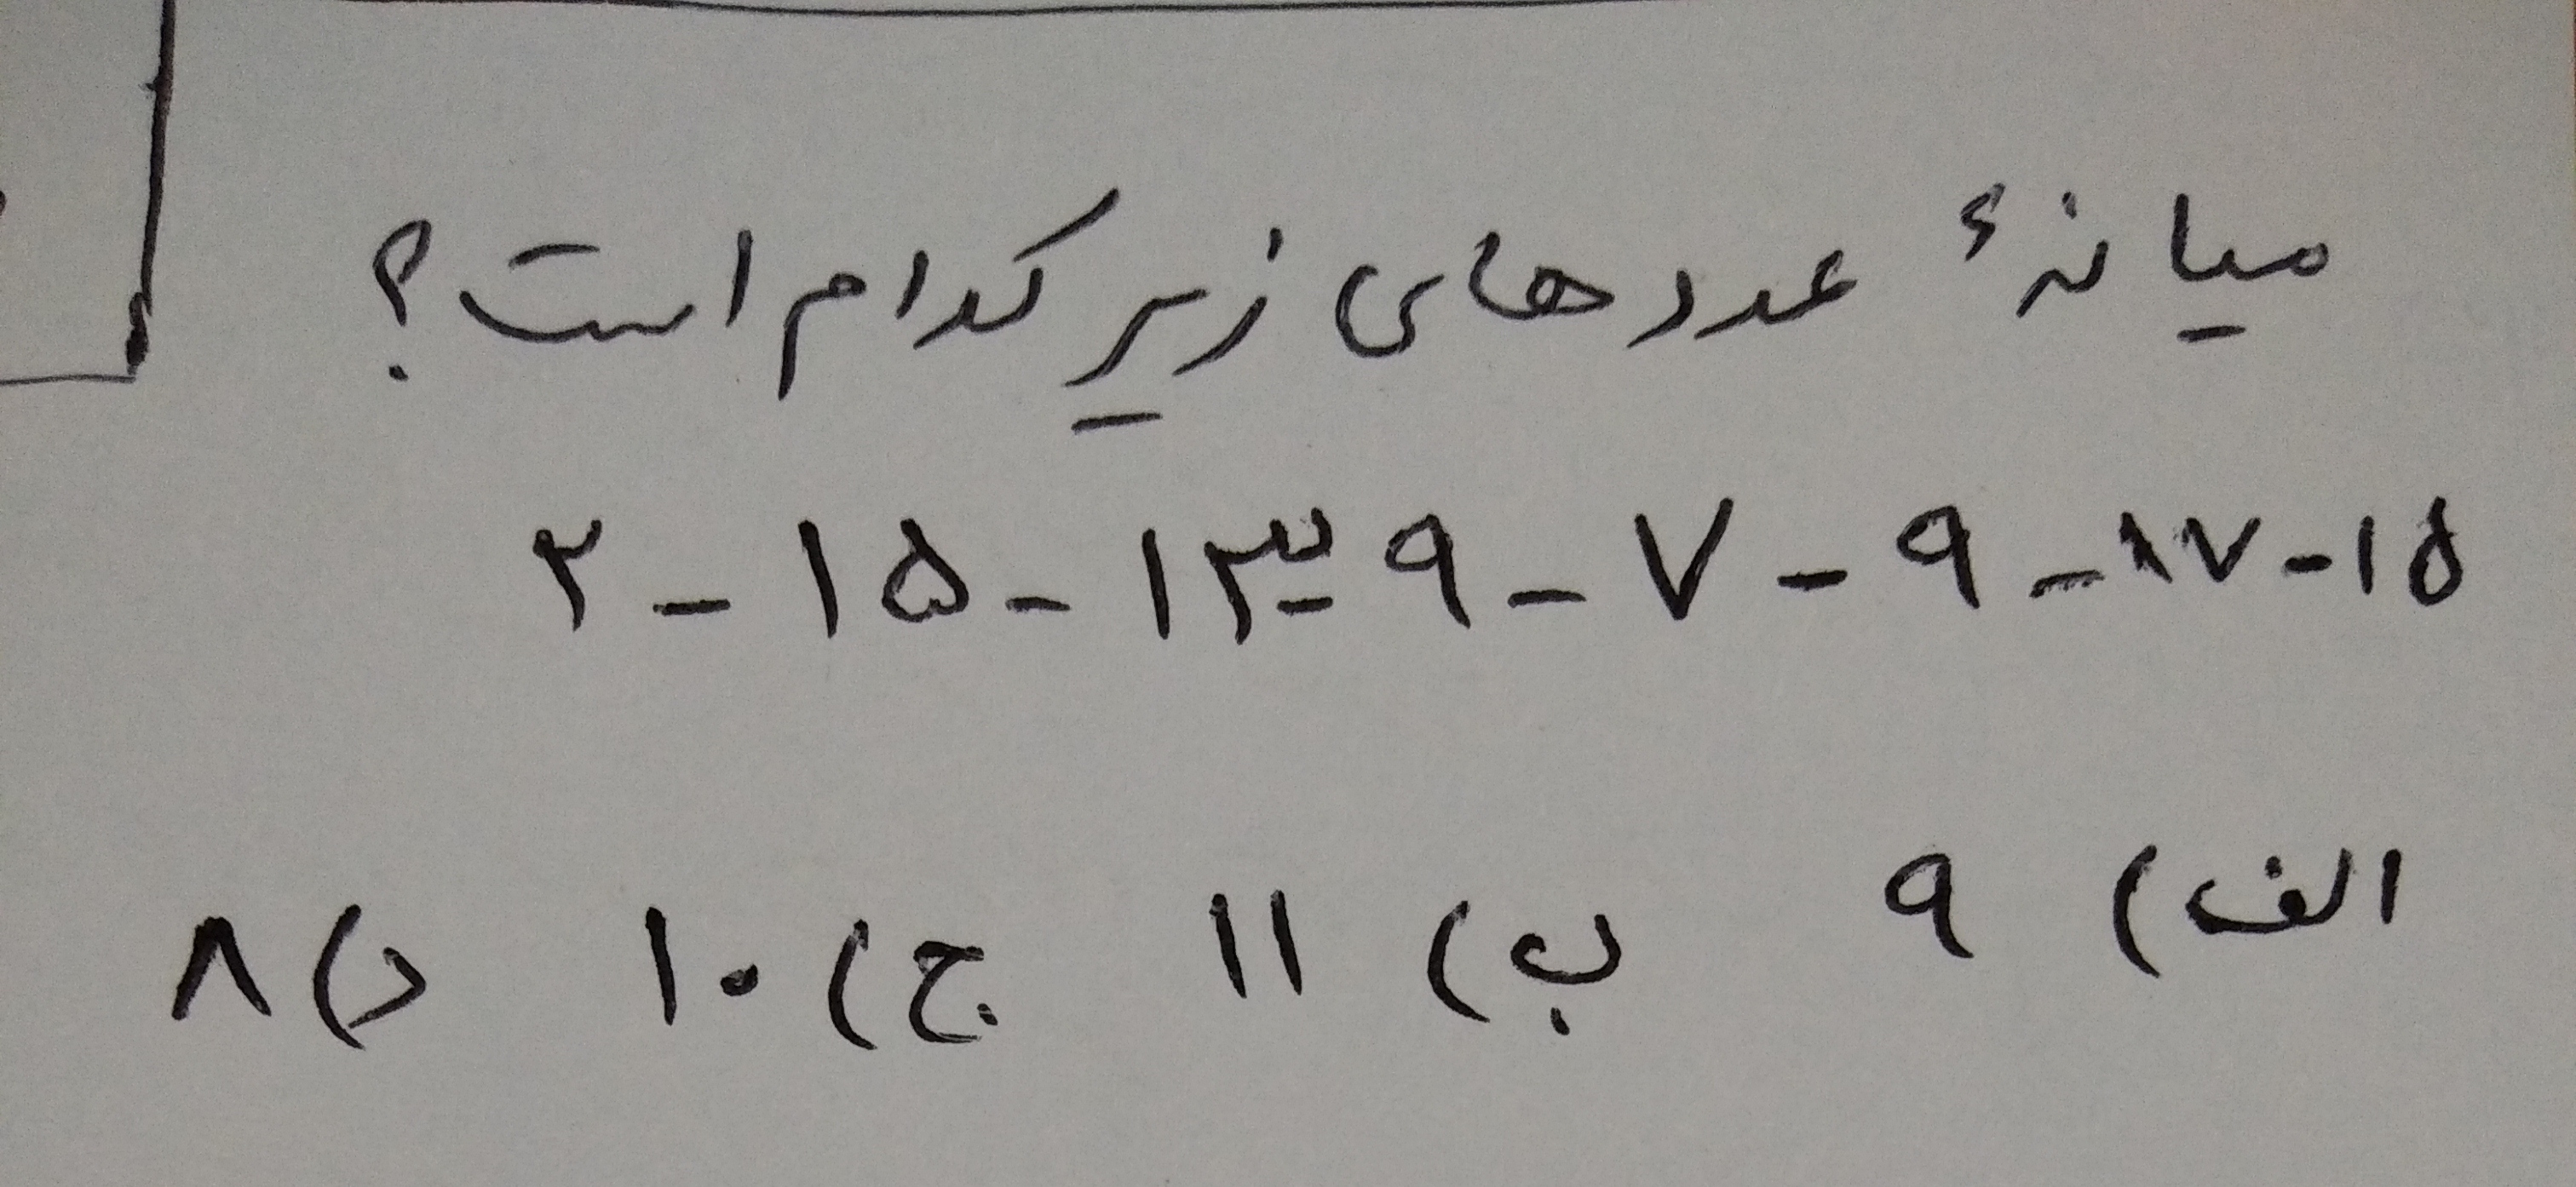 میانهٔ عددهای زیر کدام است؟
۱۵-۱۷-۹-۷-۹-۱۳-۱۵-۲
الف) ۹ ب) ۱۱ ج) ۱۰ د) ۸